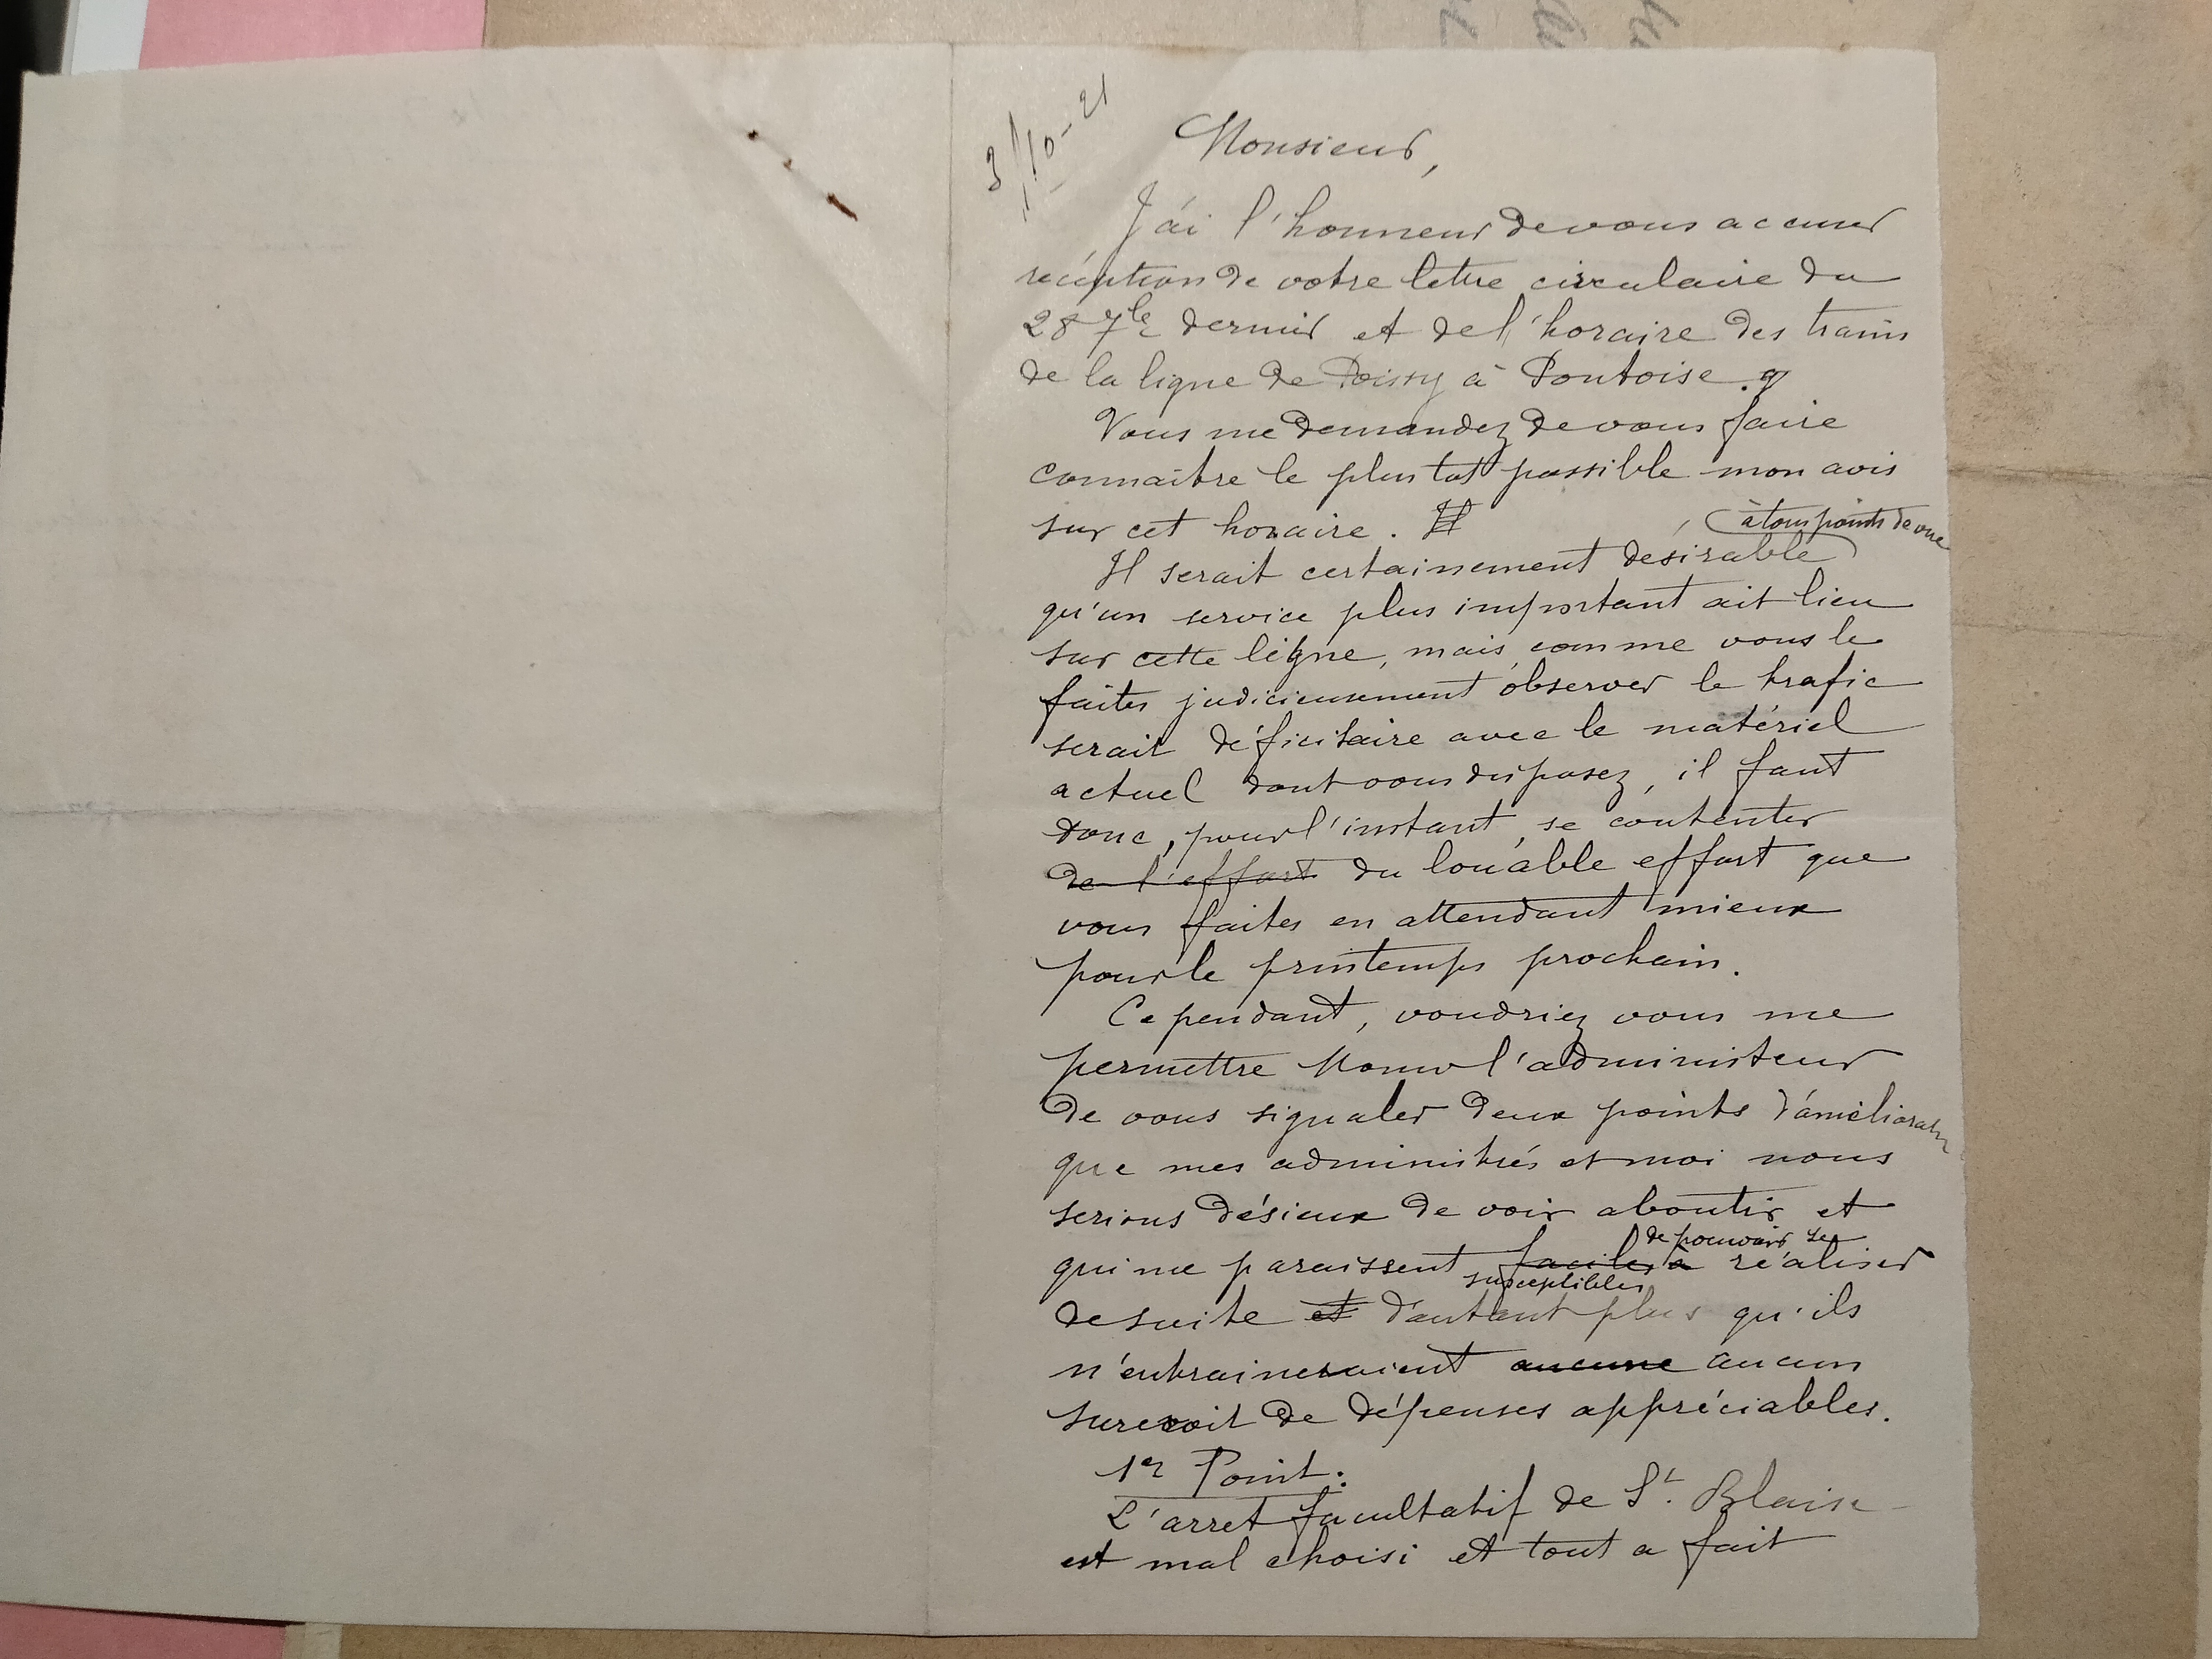 3/10-21
Monsieur,
J'ai l'honneur de vous accuser
réception de votre lettre circulaire du
28 7bre dernier et de l'horaire des trains
de la ligne de Poissy à Pontoise.
Vous me demandez de vous faire
connaitre le plus tot possible mon avis
sur cet horaire. Il
à tous points de vue
Il serait certainement désirable
qu'un service plus important ait lieu
sur cette ligne, mais, comme vous le
faites judicieusement observer le trafic
serait déficitaire avec le matériel
actuel dont vous disposez, il faut
donc, pour l'instant, se contenter
de l'effort du louable effort que
vous faites en attendant mieux
pour le printemps prochain.
Cependant, voudriez vous me
permettre l'administeur
de vous signaler deux points d'amélioration
que mes administrés et moi nous
serions désieux de voir aboutir et
de pouvoir se
qui me paraissent faciles à réaliser
susceptibles
de suite et d'autant plus qu'ils
n'entraineraient aucune aucun
surcroit de dépenses appréciables.
1er Point:
L'arret facultatif de St. Blaise
est mal choisi et tout a fait